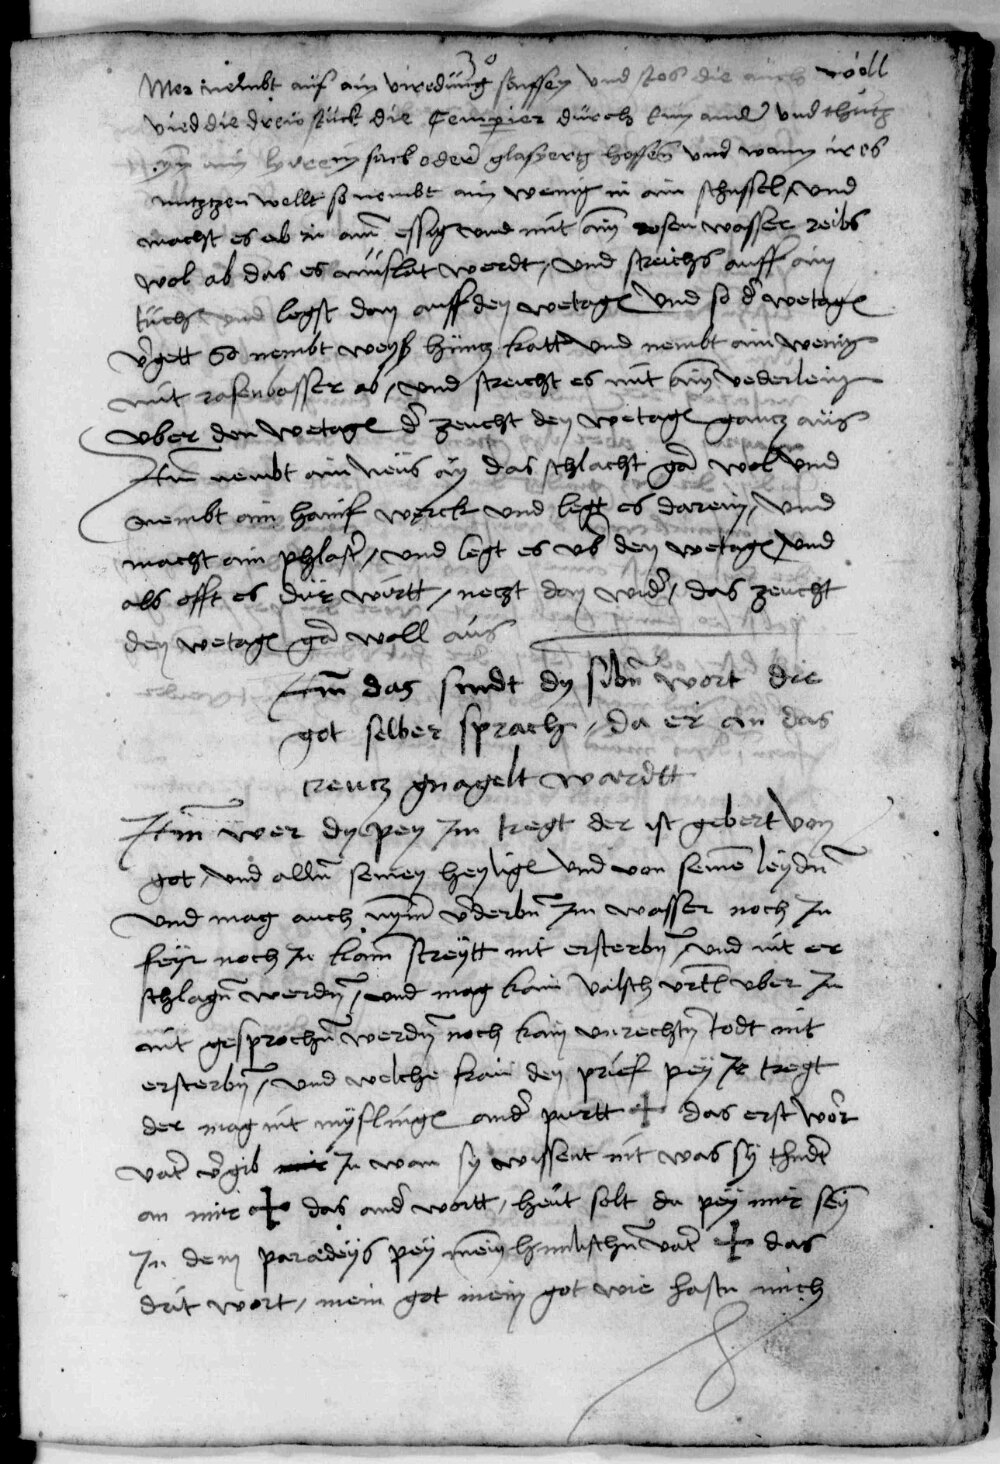 30
Mer nembt auf ain viredung saiffen und stos die auch woll
vnd die drew stuck die temperier durch ain ander und thuet
ain sack oder glasyertz heffen und wann ir es
nutzen wellt so nembt ain wenig in ain schussel, vnd
macht es ab in ainem essig vnd mit ain rosen wasser reibs
wol ab das es werdt, vnd streichs auff ain
tuech vnd legst dan auff den wetagen vnd so der wetagen
vergett So nembt weyß huntz katt vnd nembt ain wenig
mit rosenbasser ab, vnd streicht es mit ain vederlein
vber den wetagen der zeucht den wetagen gantz aus
Item nembt ain neus ay das schlacht gar wol vnd
nembt ain hanif werck vnd legt es darein, vnd
macht ain phlaster, vnd legt es vber den wetagen, vnd
als offt es dur wirtt, netzt dan wider, das zeucht
den wetagen gar woll aus
Item das sindt dy siben wort die
got selber sprach, da er an das
creutz gnagelt wardtt
Item wer dy pey Im tregt der ist gebert von
got, vnd allen seinen heyligen vnd von seinem leyden
vnd mag auch nymer verderben Im wasser noch In
feyr noch In kainem streytt nit ersterben, vnd nit er
schlagen werden, vnd mag kain valsch vrtl vber In
nit gesprochen werden noch kain vnrechten todt nit
ersterben, vnd welche fraw den prief pey Ir tregt
der mag nit myslingen an der purtt + das erst wor
vater vergib In wan sy wissent nit was sy thuedt
an mir + das ander wortt, heut solt du pey mir sein
In dem paradeys pey meinem himlischen vater + das
drit wort, mein got mein got wie hastu mich